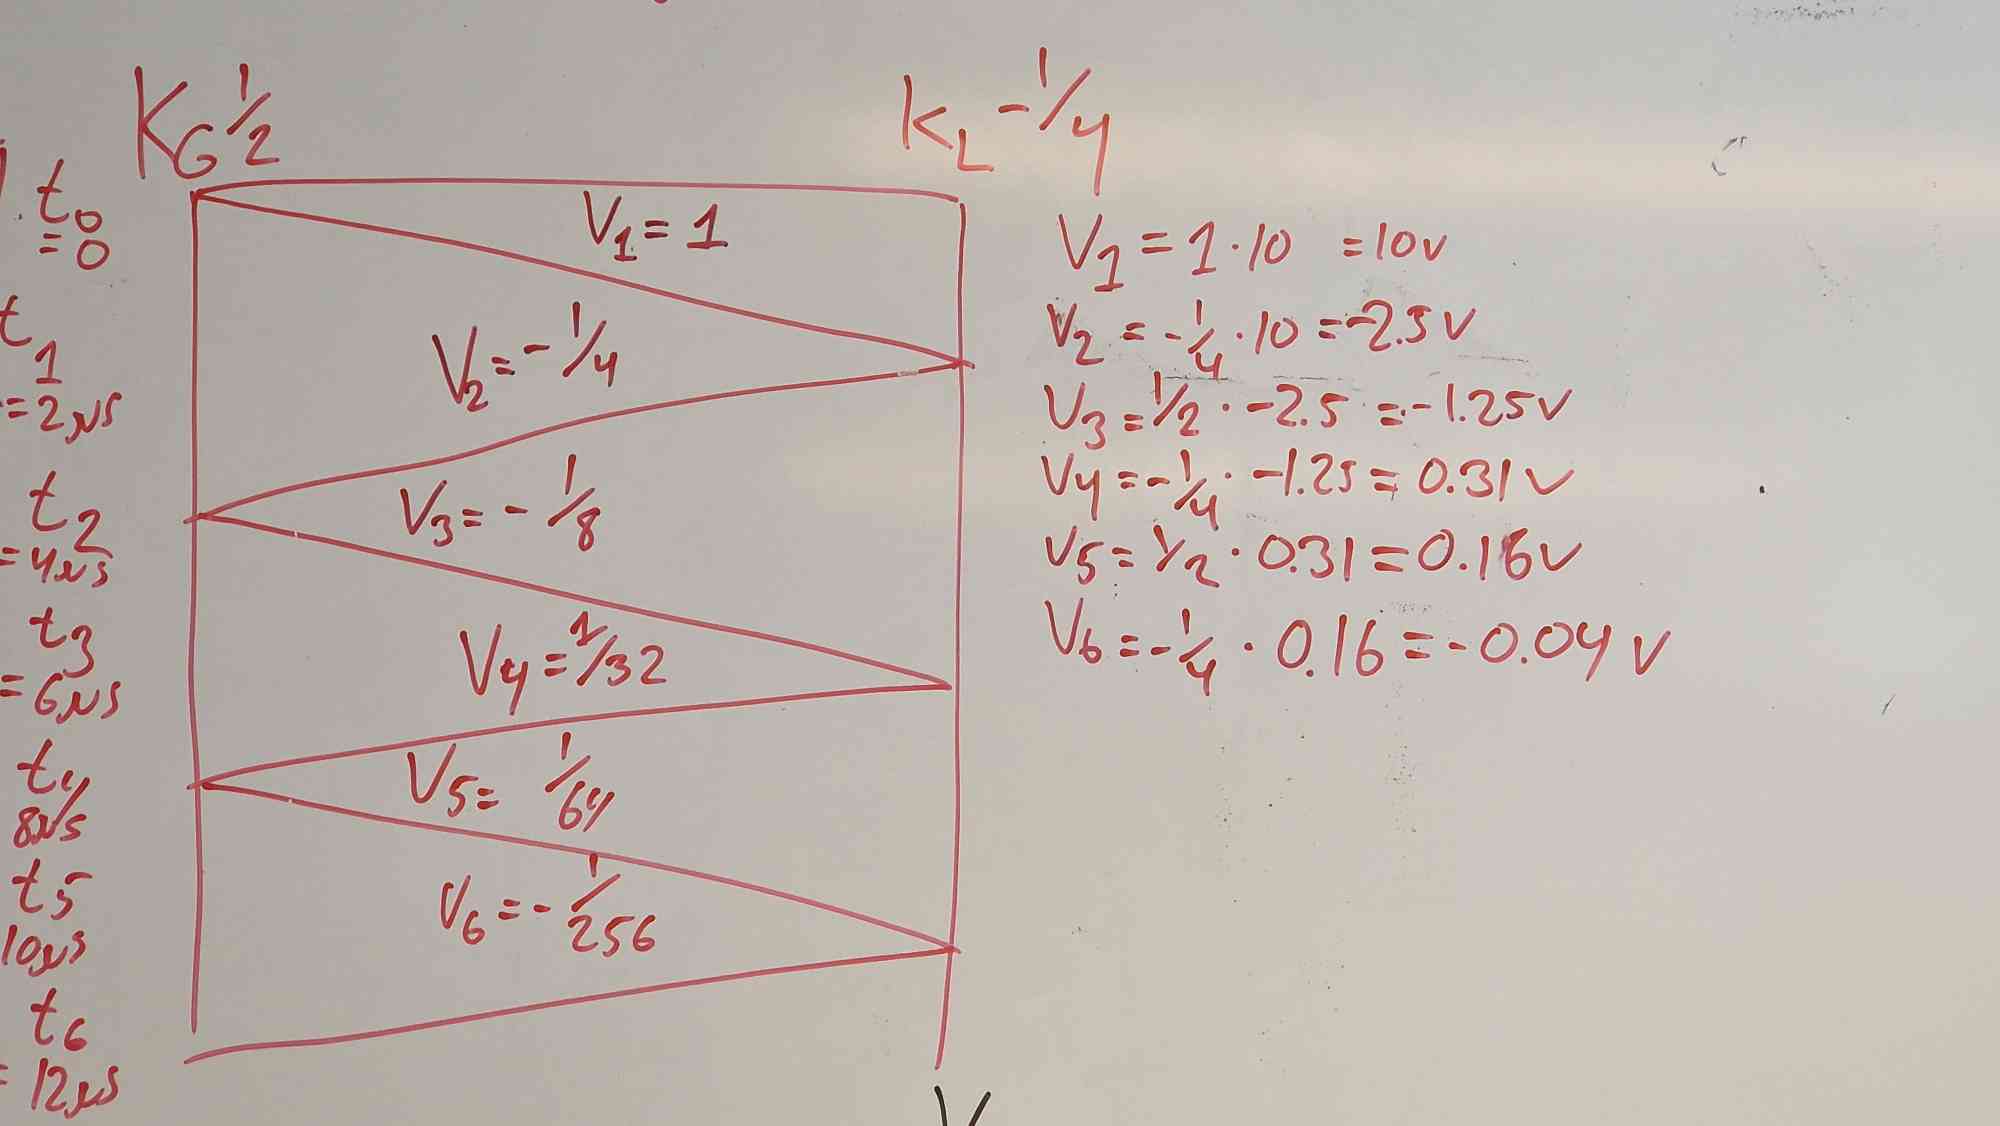 K_G 1/2
K_L -1/4
t_0
= 0
t_1
= 2μs
t_2
= 4μs
t_3
= 6μs
t_4
8μs
t_5
10μs
t_6
= 12μs
V_1 = 1
V_2 = -1/4
V_3 = -1/8
V_4 = 1/32
V_5 = 1/64
V_6 = -1/256
V_1 = 1 · 10 = 10v
V_2 = -1/4 · 10 = -2.5v
V_3 = 1/2 · -2.5 = -1.25v
V_4 = -1/4 · -1.25 = 0.31v
V_5 = 1/2 · 0.31 = 0.16v
V_6 = -1/4 · 0.16 = -0.04v